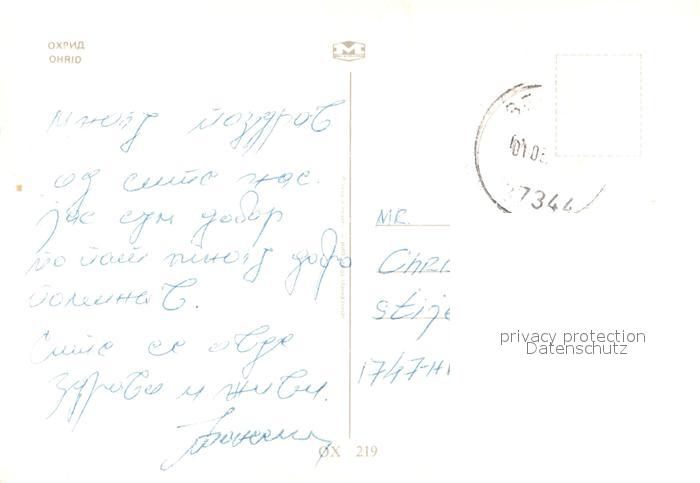 ОХРИД
OHRID
M
Многу поздрав
од сите нас.
јас сум добар
по пат многу добро
поминав.
Сите се овде
здраво и живи.
01.08.
37344
MR.
Chri
stije
1747-HI
privacy protection
Datenschutz
OX 219